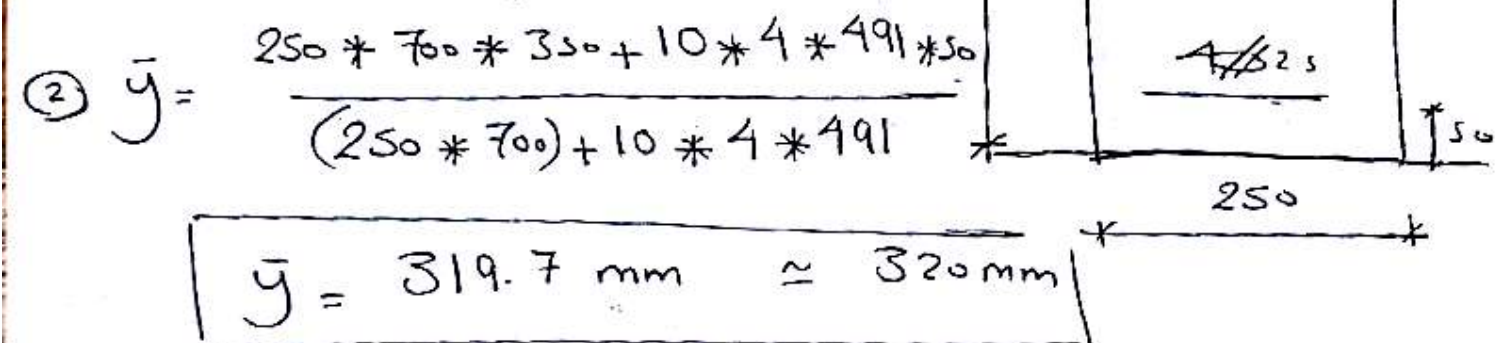 ② ȳ = 250 * 700 * 350 + 10 * 4 * 491 * 50
(250 * 700) + 10 * 4 * 491
50
250
ȳ = 319.7 mm ≃ 320 mm